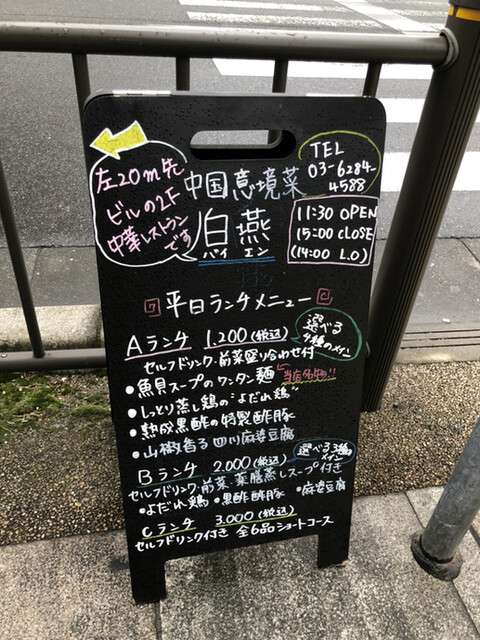 左20m先
ビルの2F
中華レストラン
です
中国意境菜
白燕
パイ エン
TEL
03-6284-
4588
11:30 OPEN
15:00 CLOSE
(14:00 L.O)
平日ランチメニュー
Aランチ 1,200(税込)
選べる
4種のメイン
セルフドリンク・前菜盛り合わせ付
・魚貝スープのワンタン麺 当店名物!!
・しっとり蒸し鶏の"よだれ鶏"
・熟成黒酢の特製酢豚
・山椒香る四川麻婆豆腐
Bランチ 2,000(税込)
選べる3種の
メイン
セルフドリンク・前菜・薬膳蒸しスープ付き
・よだれ鶏 ・黒酢酢豚 ・麻婆豆腐
Cランチ 3,000(税込)
セルフドリンク付き 全6品ショートコース